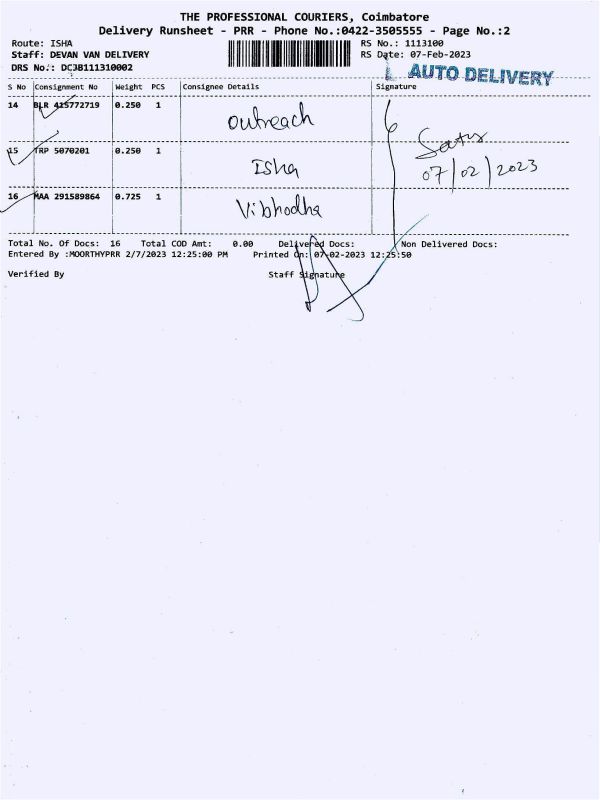 THE PROFESSIONAL COURIERS, Coimbatore
Delivery Runsheet - PRR - Phone No.:0422-3505555 - Page No.:2
Route: ISHA
RS No.: 1113100
Staff: DEVAN VAN DELIVERY
RS Date: 07-Feb-2023
DRS No.: DC3B111310002
AUTO DELIVERY
S No Consignment No Weight PCS Consignee Details Signature
14 BLR 415772719 0.250 1 Outreach
15 TRP 5070201 0.250 1 Isha
07/02/2023
16 MAA 291589864 0.725 1 Vibhodha
Total No. Of Docs: 16 Total COD Amt: 0.00 Delivered Docs: Non Delivered Docs:
Entered By :MOORTHYPRR 2/7/2023 12:25:00 PM Printed On: 07-02-2023 12:25:50
Verified By Staff Signature